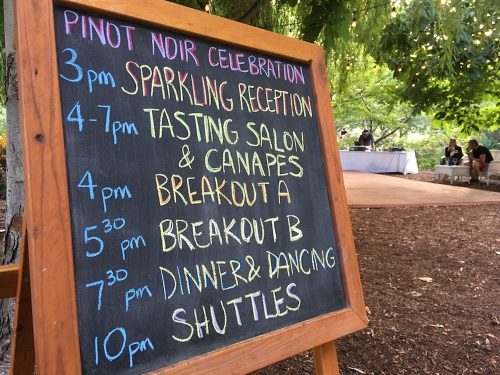 PINOT NOIR CELEBRATION
3pm SPARKLING RECEPTION
4-7pm TASTING SALON
& CANAPES
4pm BREAKOUT A
5 30 pm BREAKOUT B
7 30 pm DINNER & DANCING
10pm SHUTTLES